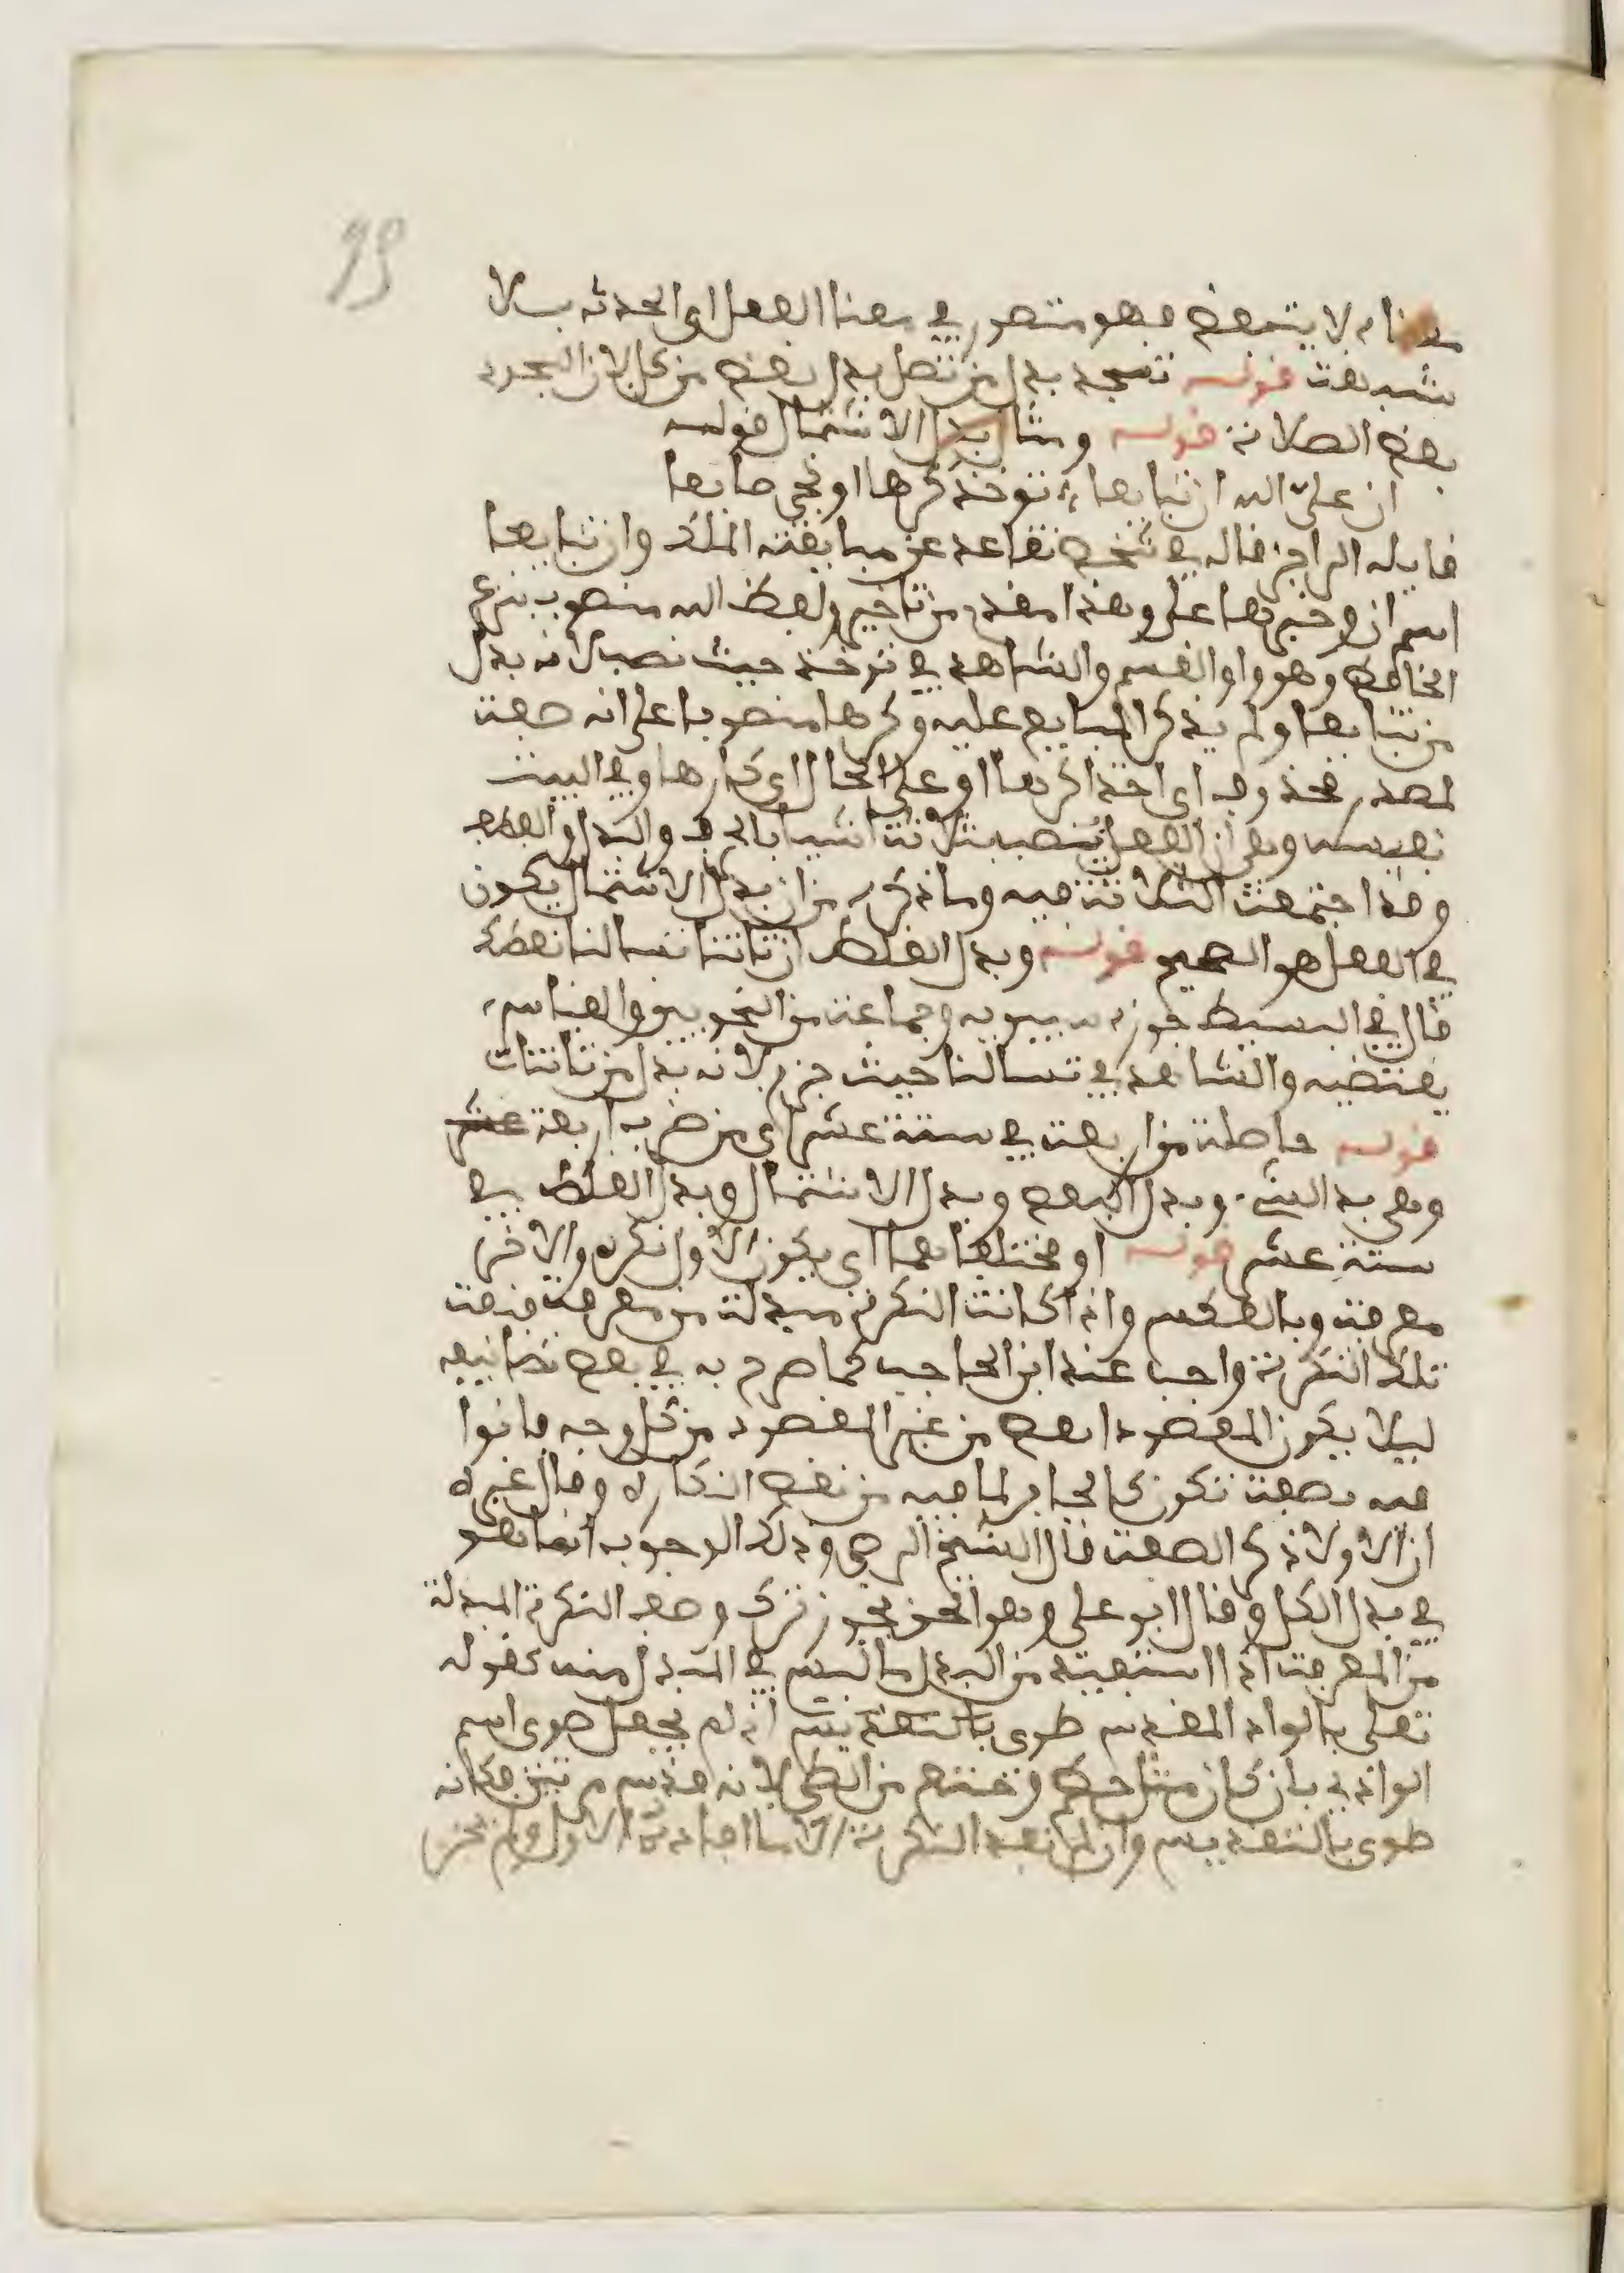 99
معناه لا يتبعض فهو متصور في معنا الفعل اي الحدث بلا
شبهة قوله تسجد بدل من تصل بدل بعض من كل لان السجود
بعض الصلاة قوله ومثال بدل الاشتمال قوله
ان علي الله ان تبايعا تؤخذ كرها او تجي طايعا
قايله الراجز قاله في شخص تقاعد عن مبايعة الملك وان تبايعا
اسم ان وخبرها علي وهذا مقدم من تاخير ولفظ الله منصوب بنزع
الخافض وهو واو القسم والشاهد في تؤخذ حيث نصب لانه بدل
من تبايعا ولم يذكر المبايع عليه وكرها منصوبا على انه صفة
لمصدر محذوف اي اخذا كرها او على الحال اي كارها وفي البيت
نفيسة وهي ان الفعل ينصب بثلاثة اشيا بالحرف والبدل والعطف
وقد اجتمعت الثلاثة فيه وما ذكره من ان بدل الاشتمال يكون
في الفعل هو الصحيح قوله وبدل الغلط ان تاتنا تسالنا نعطك
قال في البسيط جوزه سيبويه وجماعة من النحويين والقياس
يقتضيه والشاهد في تسالنا حيث جزم لانه بدل من تاتنات
قوله حاصلة من اربعة في ستة عشر اي من ضرب اربعة عشر
وهي بدل الشيء وبدل البعض وبدل الاشتمال وبدل الغلط في
ستة عشر قوله او مختلفا هما اي يكون الاول نكره والاخر
معرفة وبالعكس واذا كانت النكرة مبدلة من معرفة فنعت
تلك النكرة واجب عند ابن الحاجب كما صرح به في بعض تصانيفه
ليلا يكون المقصود انقص من غير المقصود من كل وجه فاتوا
فيه بصفة تكون كالجابر لما فيه من نقص النكاره وقال غيره
ان الاولا ذكر الصفة قال الشيخ الرضي وذلك الوجوب انما هو
في بدل الكل وقال ابو علي وهو الحق يجوز ترك وصف النكرة المبدلة
من المعرفة اذا استفيد من البدل ما ليس في المبدل منه كقوله
تعلى بالواد المقدس طوى بالتقديس اذا لم يجعل طوى اسم
الوادي بان كان مثل حطم وختع من الطي لانه قدس مرتين فكانه
طوى بالتقديس وان لم تفد النكرة الا ما افاده الاول لم تجز